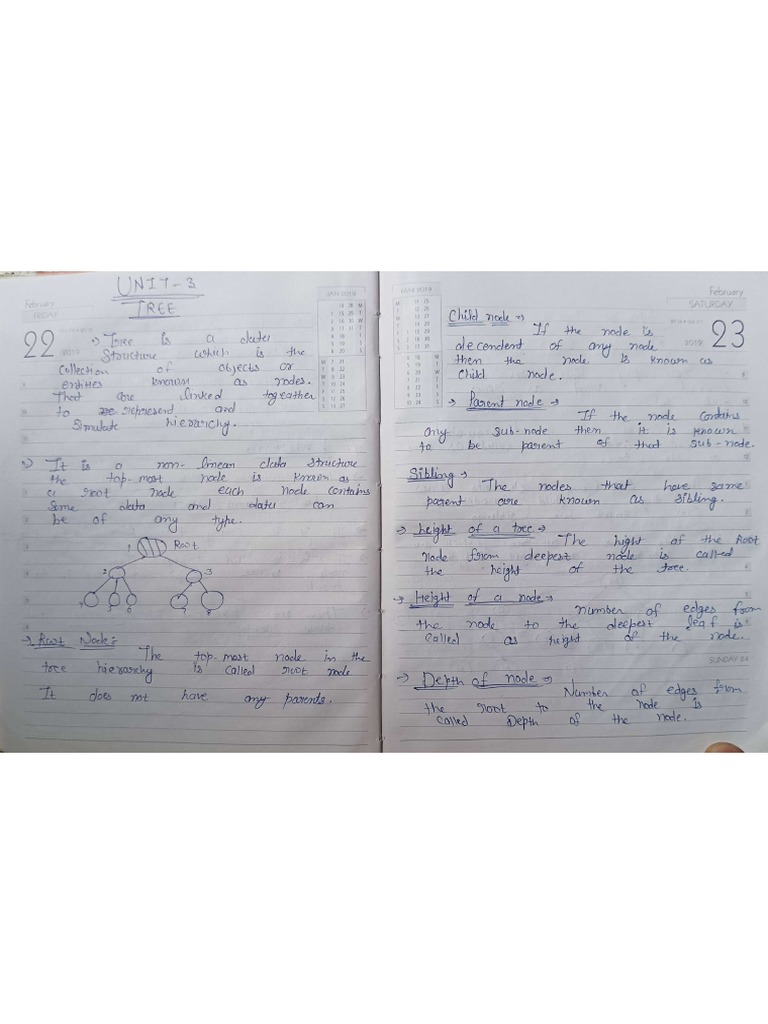 UNIT-3
TREE
February
FRIDAY
22
2019
JAN 2019
→ Tree is a data
Structure which is the
collection of objects or
entities known as nodes.
That are linked togeather
to represent and
Simulate hierarchy.
→ It is a non-linear data structure
the top-most node is known as
a root node each node contains
some data and data can
be of any type.
1 Root
2 3
4 5 6 7 8
→ Root Node:
The top-most node in the
tree hierarchy is called root node
It does not have any parents.
JAN 2019
February
SATURDAY
23
2019
Child node →
If the node is
decendent of any node
then the node is known as
child node.
→ Parent node →
If the node contains
any sub-node then it is known
to be parent of that sub-node.
Sibling →
The nodes that have same
parent are known as sibling.
→ height of a tree →
The hight of the Root
node from deepest node is called
the height of the tree.
→ Height of a node →
Number of edges from
the node to the deepest leaf is
called as height of the node.
SUNDAY 24
→ Depth of node →
Number of edges from
the root to the node is
called Depth of the node.